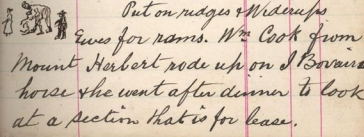 Put on ridges & Widerups
Ewes for rams. Wm Cook from
Mount Herbert rode up on J Bovairs
horse & he went after dinner to look
at a section that is for lease.